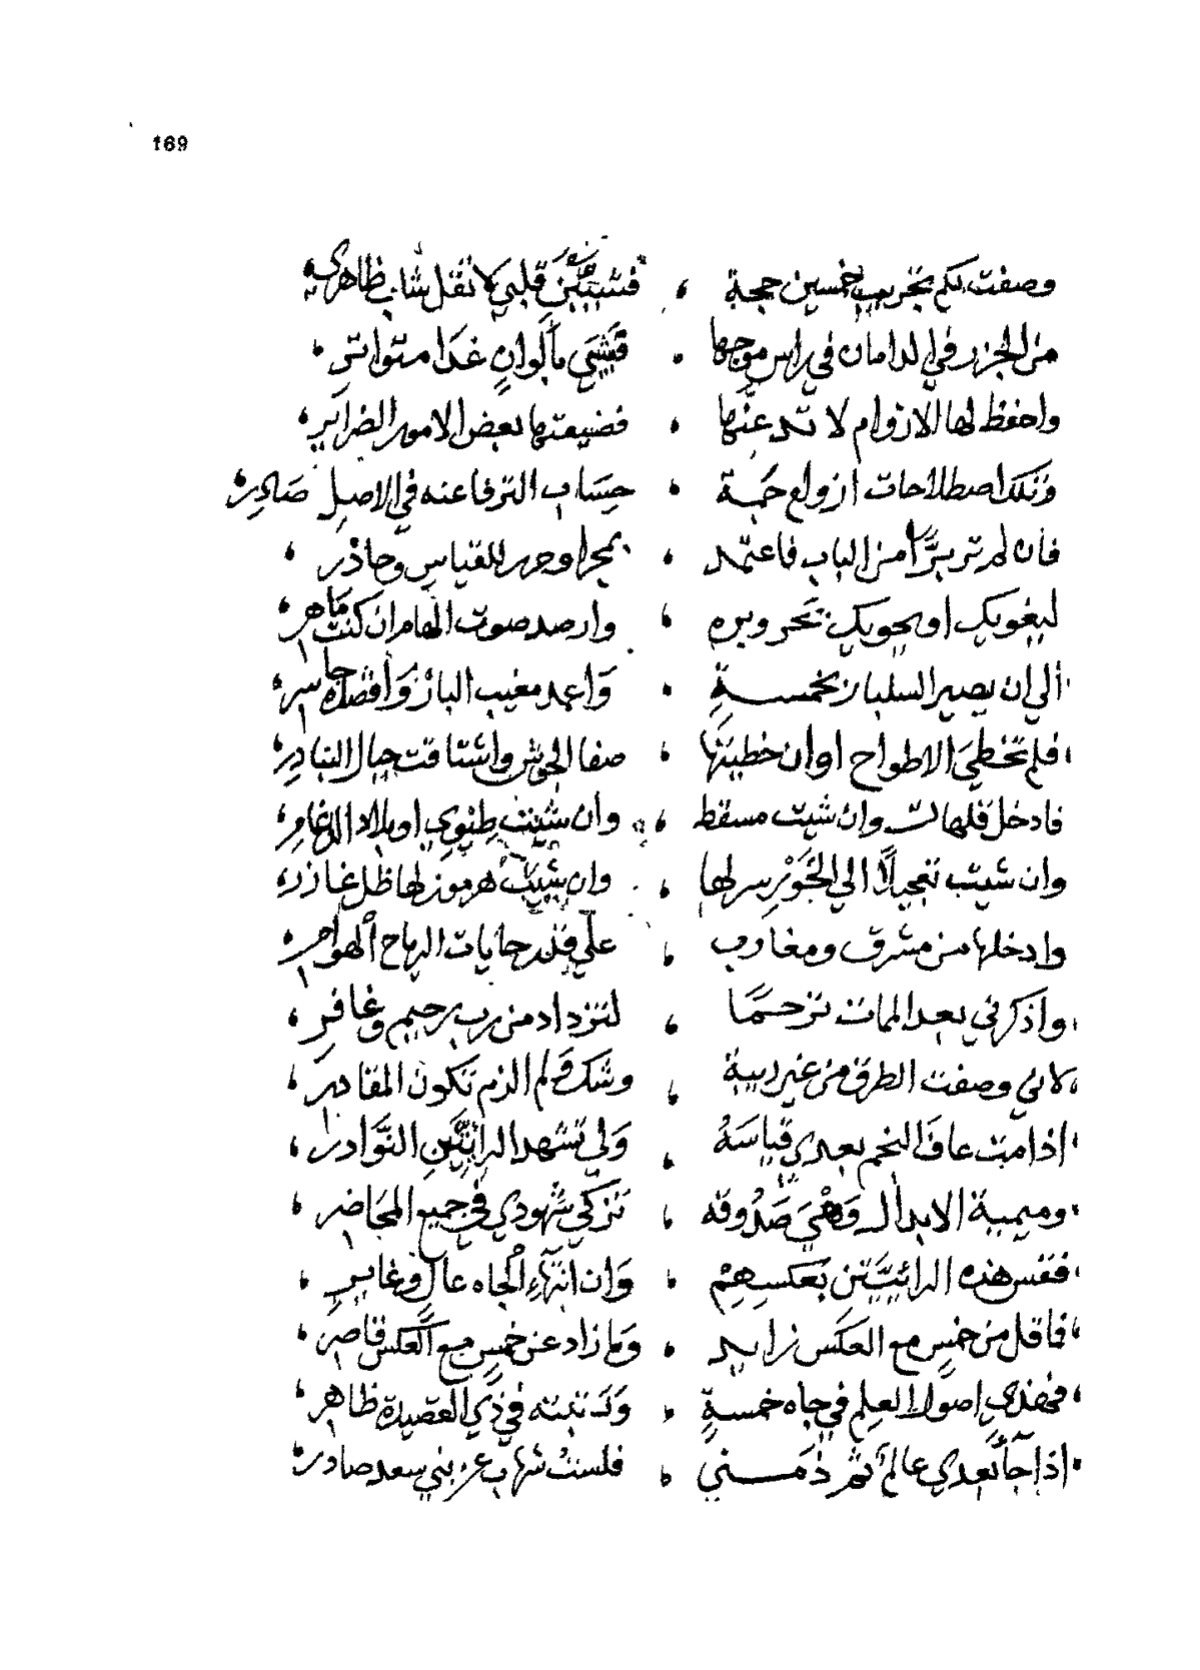 169
وصفت لكم تجريب خمسين حجة ، فشيبن قلبي لا تقل شاب ظاهري
من الجزر في الدامان في راس موجها ، بالوان غدا متواتر
واحفظ لها الازوام لا تدعنها ، فضيعتها بعض الامور الضراير
وتلك اصطلاحات ازوام جمة ، حساب الترفا عنه في الاصل صادر
فان لم تر برًّا من الباب فاعتمد ، بمجرا وحرر للقياس وحاذر
ليغويك او يحويك ، وارصد صوت الهامر ان كنت ماهر
الي ان يصير السلبار بخمسة ، واعمد مغيب البار وافصد جاسر
فلم تخطي الاطواح او ان خطيتها ، صفا الجوش واشتاقت جبال البنادر
فادخل قلهات وان شيت مسقط ، وان شيت طيوي او بلاد
وان شيت تعجيلًا الي الخور سر لها ، وان شيت هرموز لها ظل غازر
وادخلها من مشرق ومغارب ، علي قدر جايات الرياح الهوامر
واذكرني بعد الممات ترحمًا ، لتزداد من رب رحيم وغافر
لاني وصفت الطرق من غير ريبة ، وشك ولم الزم تكون المقادر
اذا مت عاف النجم بعدي قياسه ، ولي تشهد الرائيتين النوادر
وميمية الابدال وهي صدوقه ، تزكي شهودي في جميع المحاضر
فقس هذه الرائيتين بعكسهم ، وان انتهاء الجاه عال وغاير
فاقل من خمس مع العكس زايد ، وما زاد عن خمس مع العكس قاصر
فهذي اصول العلم في جاه خمسة ، وقد تبته في ذي القصيدة ظاهر
اذا جاء بعدي عالم ثم ذمني ، فلست شهاب عن بني سعد صادر